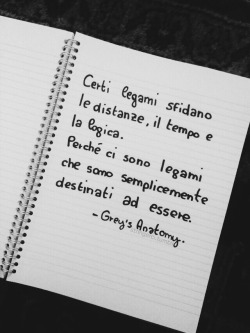 Certi legami sfidano
le distanze, il tempo e
la logica.
Perché ci sono legami
che sono semplicemente
destinati ad essere.
- Grey's Anatomy.